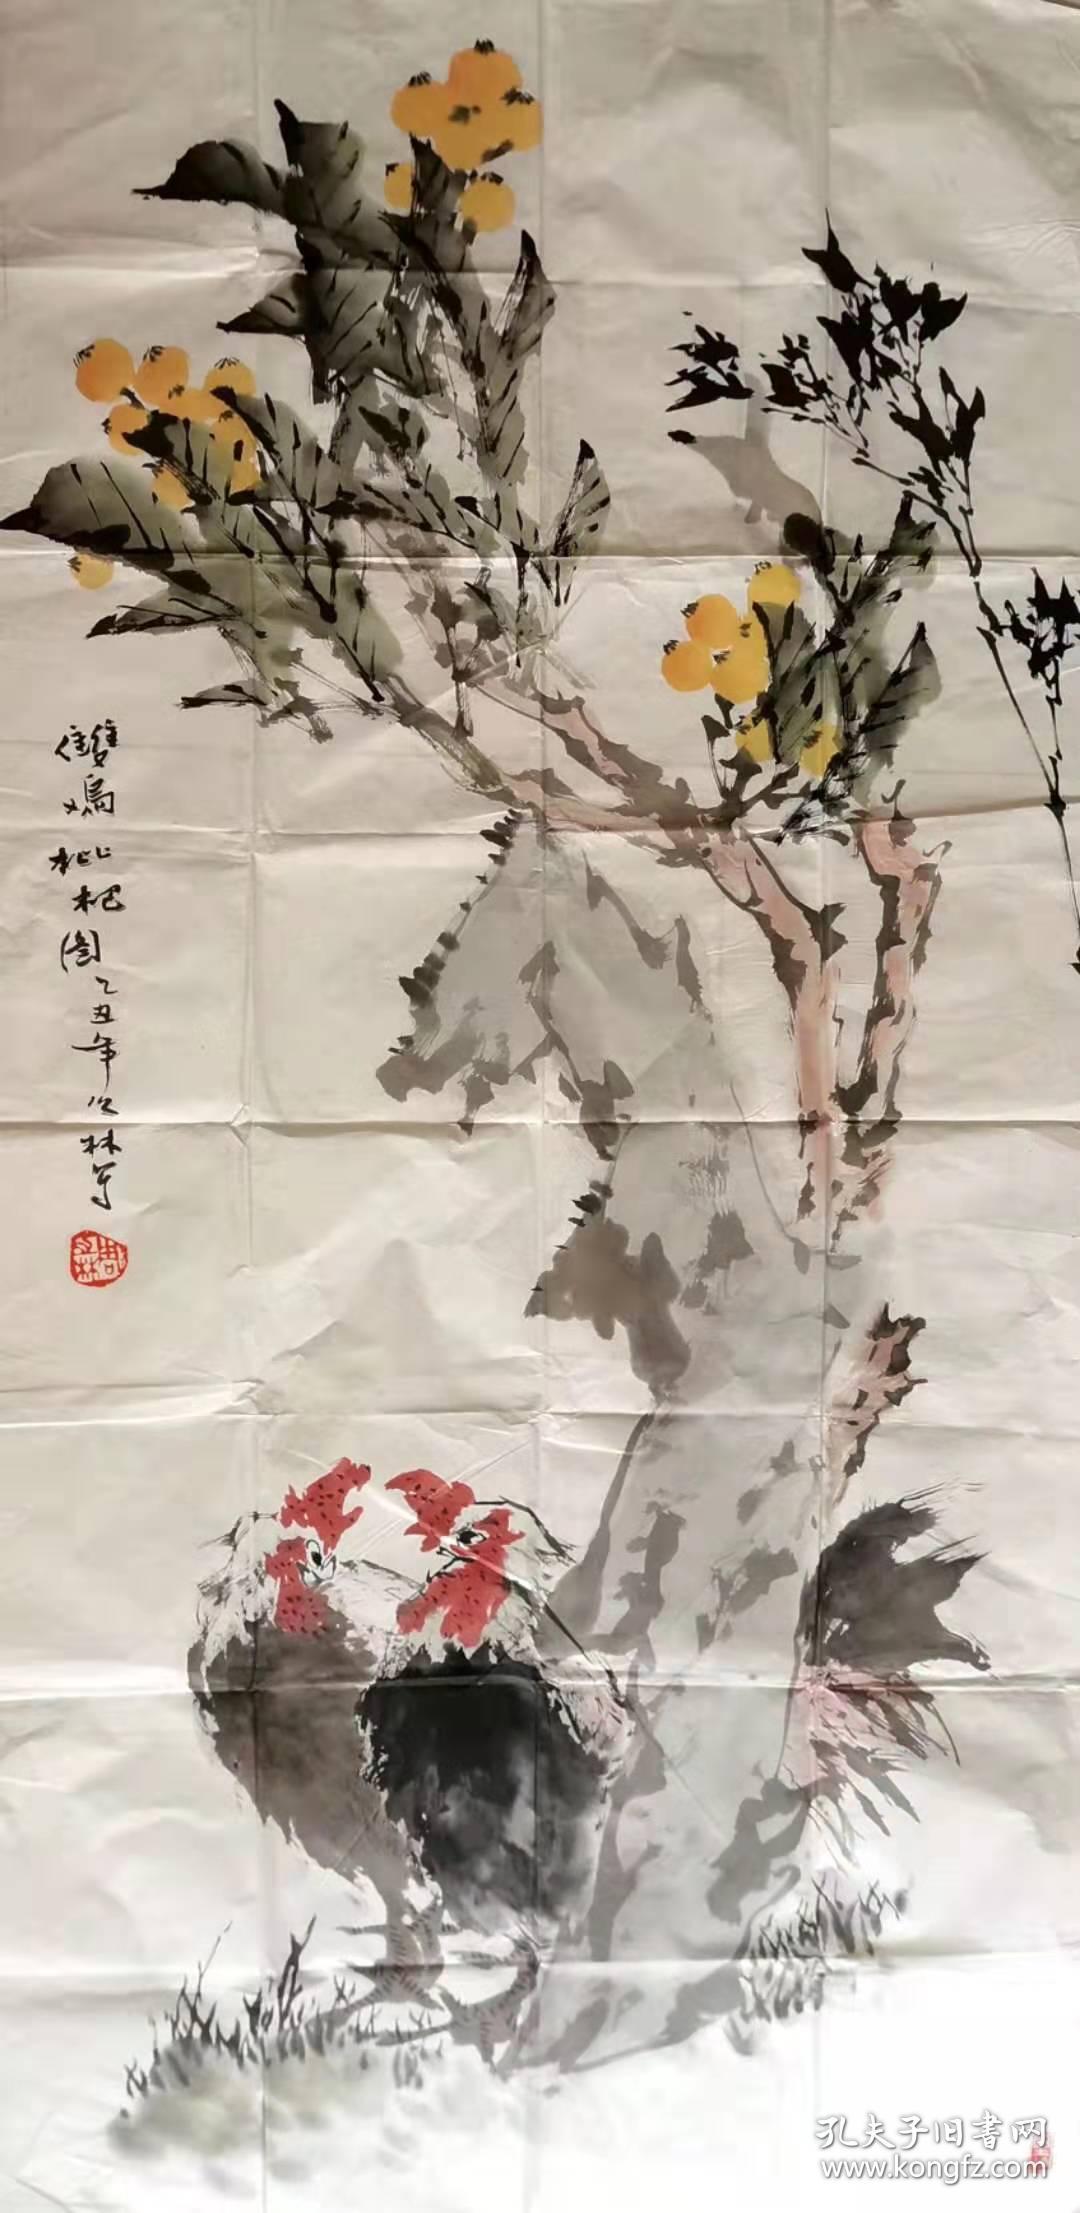 雙鳮枇杷图乙丑年公林写
孔夫子旧书网
www.kongfz.com